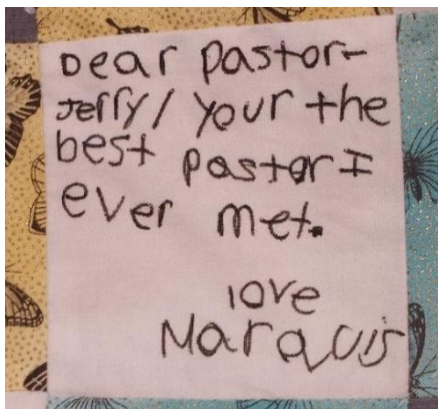 Dear Pastor-
Jerry/ your the
best Pastor I
ever met.
love
Marquis